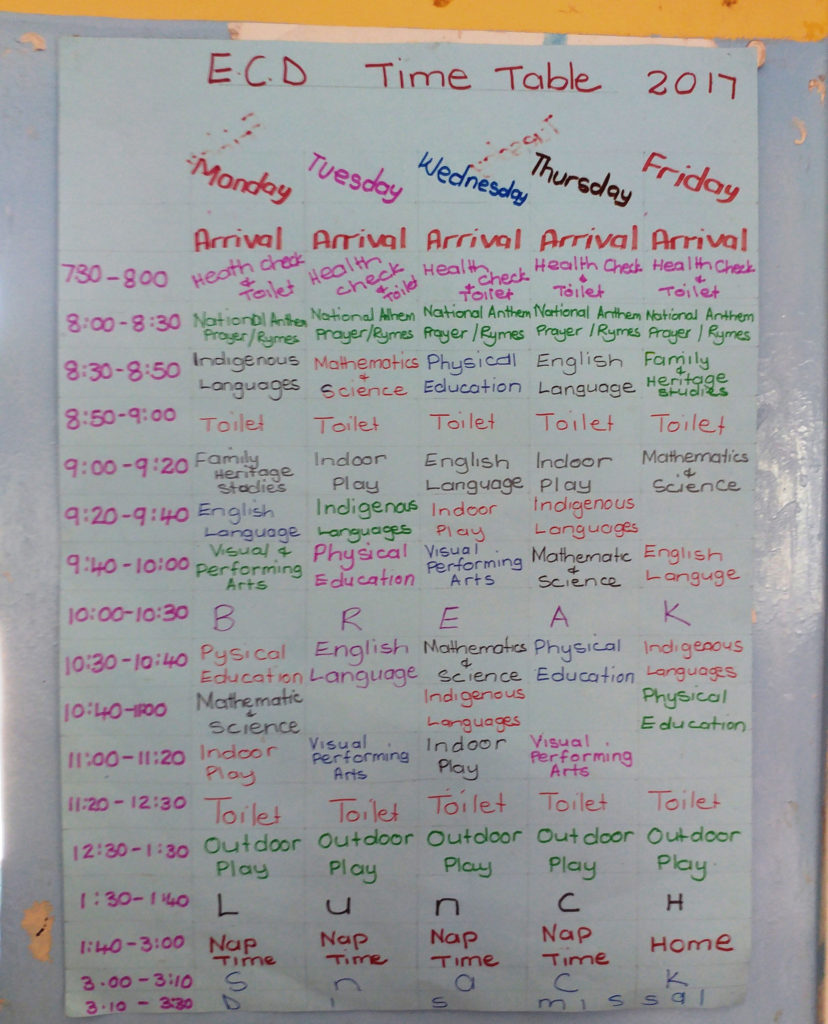 E.C.D Time Table 2017
Monday Tuesday Wednesday Thursday Friday
Arrival Arrival Arrival Arrival Arrival
730-800 Heath Check & Toilet Health check & Toilet Health check & Toilet Health Check & Toilet Health Check & Toilet
8:00-8:30 National Anthem Prayer/Rymes National Athem Prayer/Rymes National Anthem Prayer/Rymes National Anthem Prayer/Rymes National Anthem Prayer/Rymes
8:30-8:50 Indigenous Languages Mathematics & Science Physical Education English Language Family & Heritage Studies
8:50-9:00 Toilet Toilet Toilet Toilet Toilet
9:00-9:20 Family Heritage Studies Indoor Play English Language Indoor Play Mathematics & Science
9:20-9:40 English Language Indigenous Languages Indoor Play Indigenous Languages
9:40-10:00 Visual & Performing Arts Physical Education Visual Performing Arts Mathematic & Science English Languge
10:00-10:30 B R E A K
10:30-10:40 Pysical Education English Language Mathematics & Science Physical Education Indigenous Languages
10:40-11:00 Mathematic & Science Indigenous Languages Physical Education
11:00-11:20 Indoor Play Visual Performing Arts Indoor Play Visual Performing Arts
11:20-12:30 Toilet Toilet Toilet Toilet Toilet
12:30-1:30 Outdoor Play Outdoor Play Outdoor Play Outdoor Play Outdoor Play.
1:30-1:40 L u n C H
1:40-3:00 Nap Time Nap Time Nap Time Nap Time Home
3.00-3:10 S n a C K
3.10-3:30 D i s m i s s a l